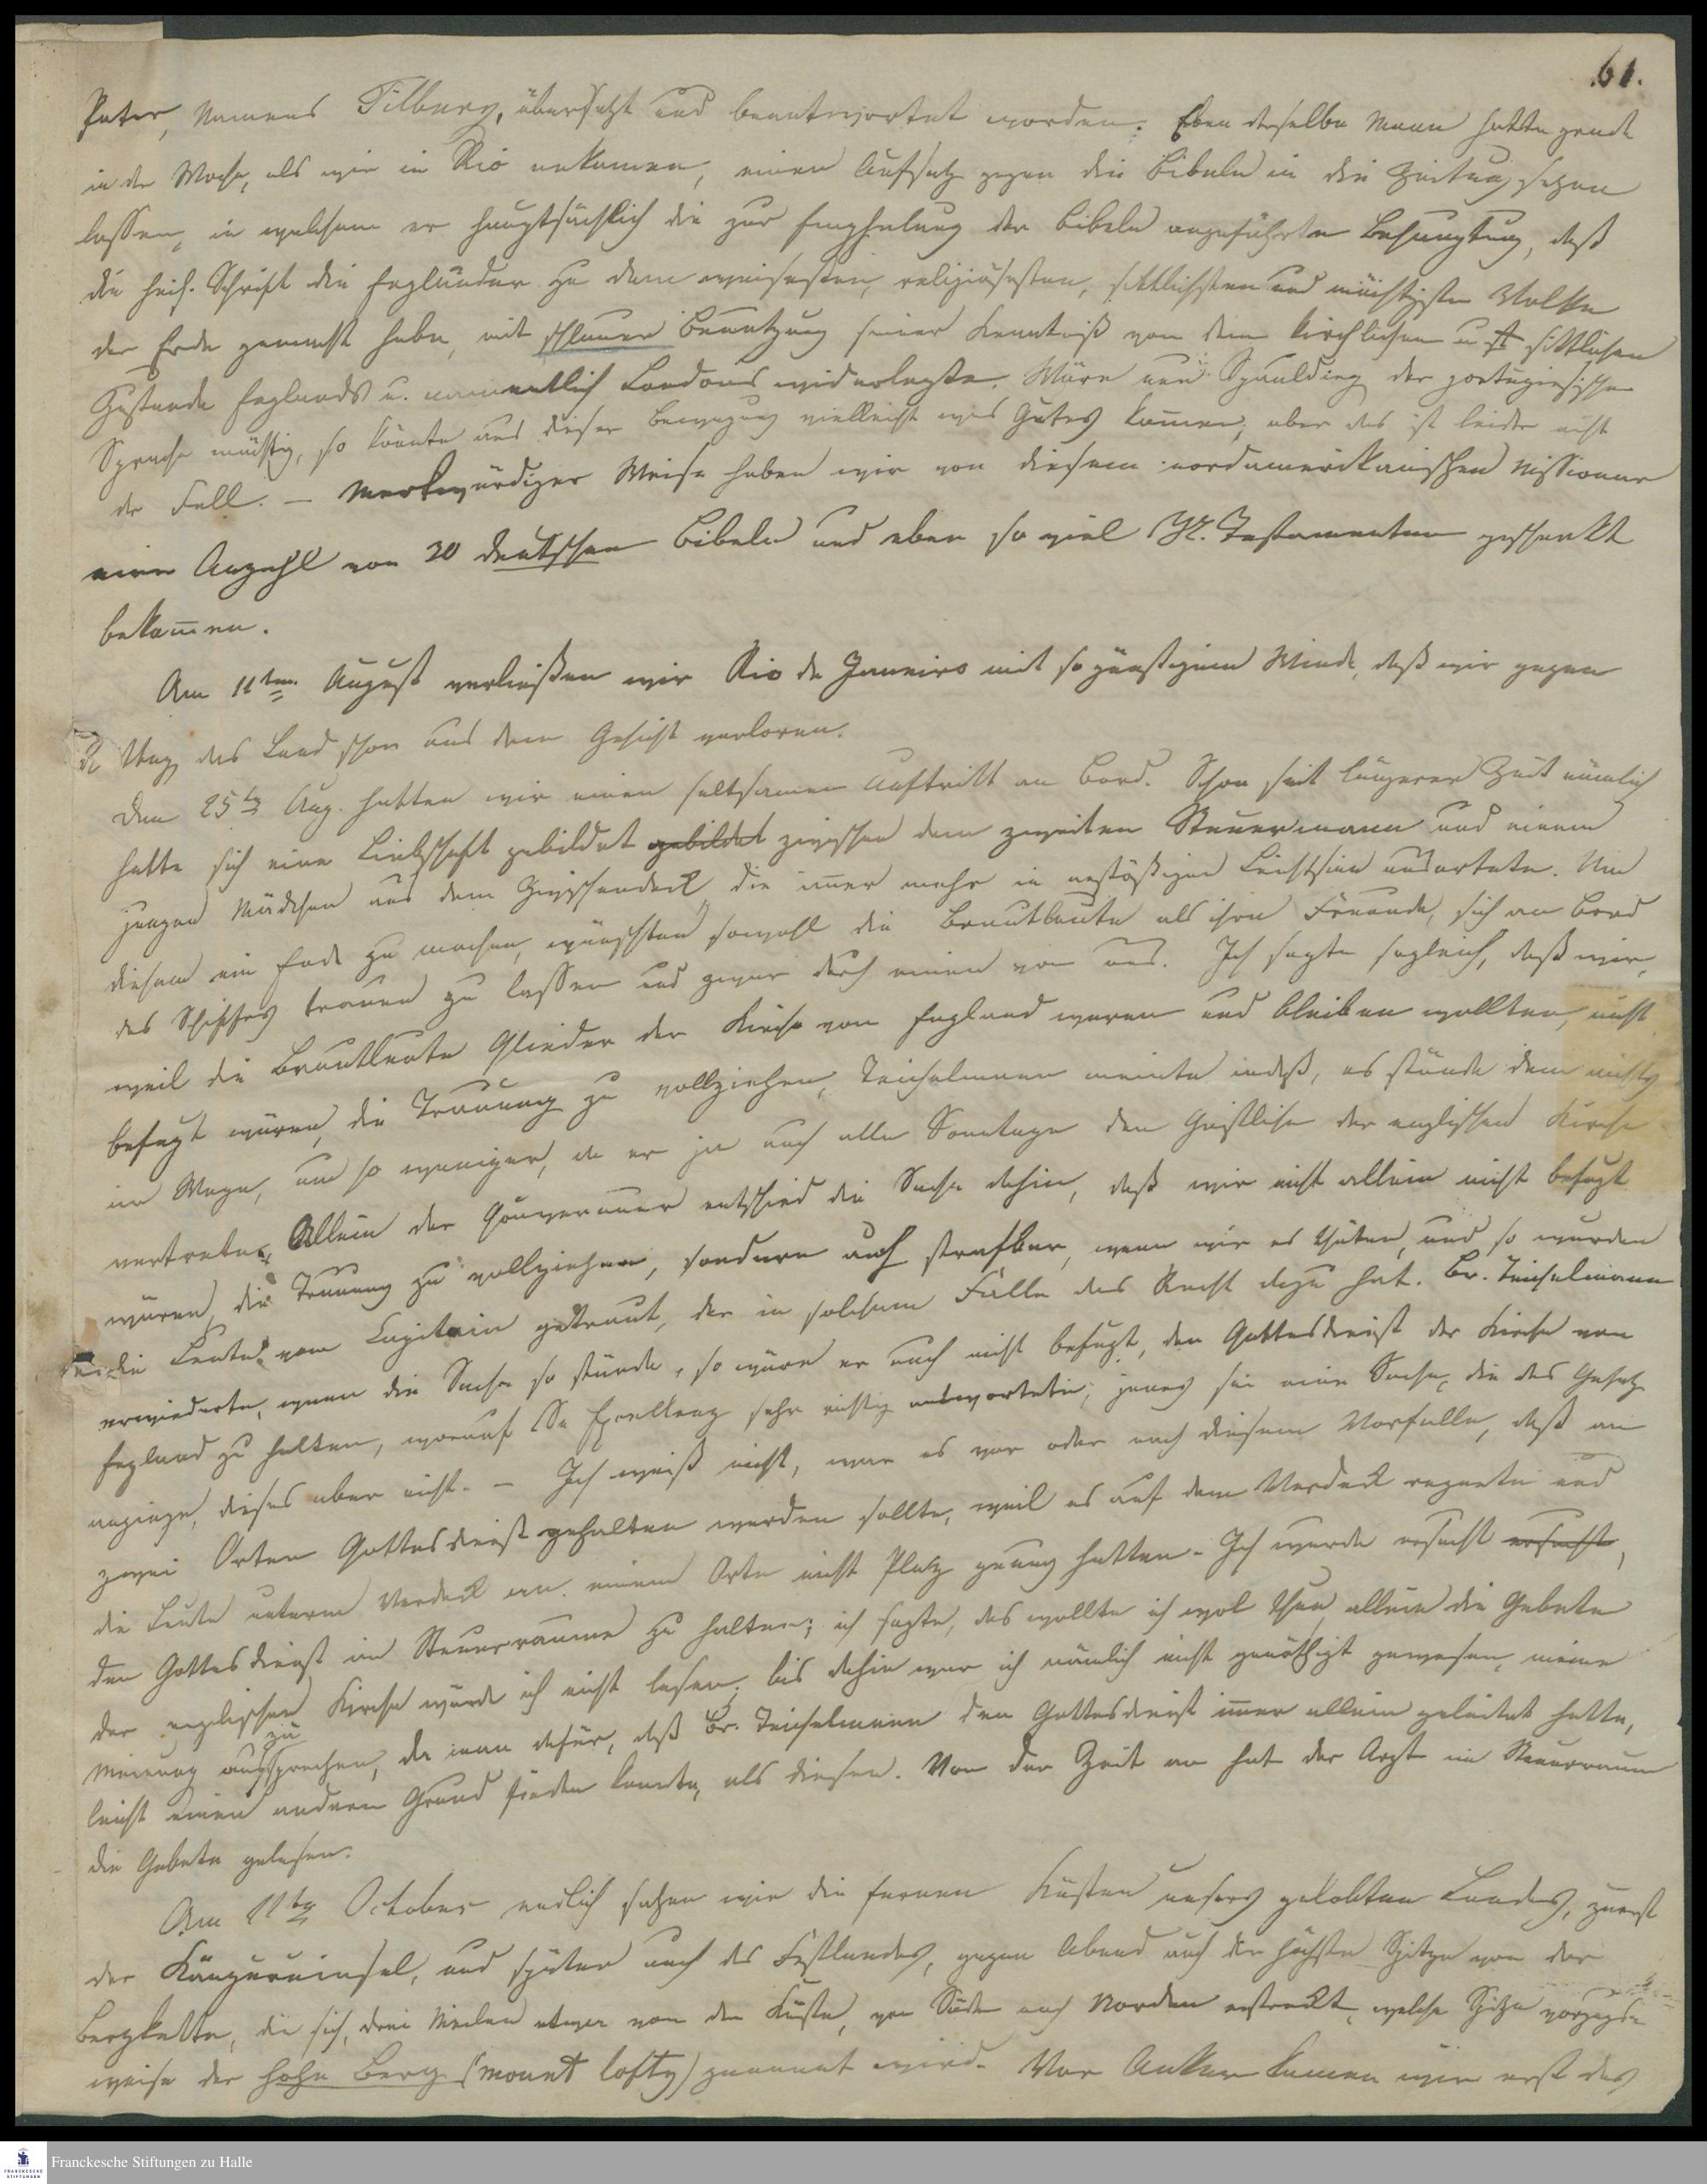 61.
Pater, Namens Tilbury, übersetzt und beantwortet worden. Eben derselbe Mann hatte grade
in der Woche, als wir in Rio ankamen, einen Aufsatz gegen die Bibeln in die Zeitung setzen
lassen, in welchem er hauptsächlich die zur Empfehlung der Bibeln angeführte Behauptung, daß
die heil. Schrift die Engländer zu dem weisesten, religiösesten, sittlichsten und mächtigsten Volke
der Erde gemacht habe, mit schlauer Benutzung seiner Kenntniß von dem kirchlichen u. sittlichen
Zustande Englands u. namentlich Londons widerlegte. Wäre nun Spaulding der portugiesischen
Sprache mächtig, so könnte aus dieser Bewegung vielleicht was Gutes kom̄en, aber das ist leider nicht
der Fall. – Merkwürdiger Weise haben wir von diesem nordamerikanischen Missionar
eine Anzahl von 20 deutschen Bibeln und eben so viel N. Testamenten geschenkt
bekom̄en.
Am 11ten August verließen wir Rio de Janeiro mit so günstigem Winde, daß wir gegen
Mag das Land schon aus dem Gesicht verloren.
Den 25ten Aug. hatten wir einen seltsamen Auftritt an Bord. Schon seit längerer Zeit nämlich
hatte sich eine Liebschaft gebildet gebildet zwischen dem zweiten Steuermann und einem
jungen Mädchen aus dem Zwischendeck, die im̄er mehr in anstößigen Leichtsinn ausartete. Um
diesem ein Ende zu machen, wünschten sowohl die Brautleute als ihre Freunde, sich an Bord
des Schiffes trauen zu lassen und zwar durch einen von uns. Ich sagte sogleich, daß wir,
weil die Brautleute Glieder der Kirche von England waren und bleiben wollten, nicht
befugt wären, die Trauung zu vollziehen, Teichelmann meinte indeß, es stände dem nichts
im Wege, um so weniger, da er ja auch alle Sonntage den Geistlichen der englischen Kirche
vertrete. Allein der Gouverneur entschied die Sache dahin, daß wir nicht allein nicht befugt
wären, die Trauung zu vollziehen, sondern auch strafbar, wenn wir es thäten, und so wurden
die Leute vom Capitain getraut, der in solchem Falle das Recht dazu hat. Br. Teichelmann
erwiederte, wenn die Sache so stände, so wäre er auch nicht befugt, den Gottesdienst der Kirche von
England zu halten, worauf Se Excellenz sehr richtig antwortete; jenes sei eine Sache, die das Gesetz
anginge, dieses aber nicht. – Ich weiß nicht, war es vor oder nach diesem Vorfalle, daß an
zwei Orten Gottesdienst gehalten werden sollte, weil es auf dem Verdeck regnete und
die Leute unterm Verdeck an einem Orte nicht Platz genug hatten. Ich wurde ersucht ersucht,
den Gottesdienst im Steuerraume zu halten; ich sagte, das wollte ich wol thun, allein die Gebete
der englischen Kirche würde ich nicht lesen; bis dahin war ich nämlich nicht genöthigt gewesen, meine
Meinung auszusprechen, da man dafür, daß Br. Teichelmann den Gottesdienst im̄er allein geleitet hatte,
leicht einen andern Grund finden konnte, als diesen. Von der Zeit an hat der Arzt im Steuerraum
die Gebete gelesen.
Am 11ten October endlich sahen wir die fernen Küsten unsers gelobten Landes, zuerst
der Känguruinsel, und später auch des Festlandes, gegen Abend auch die höchste Spitze von der
Bergkette, die sich, drei Meilen etwa von der Küste, von Süden nach Norden erstreckt, welche Spitze vorzugs-
weise der hohe Berg (mount lofty) genannt wird. Vor Anker kamen wir erst des
Franckesche Stiftungen zu Halle